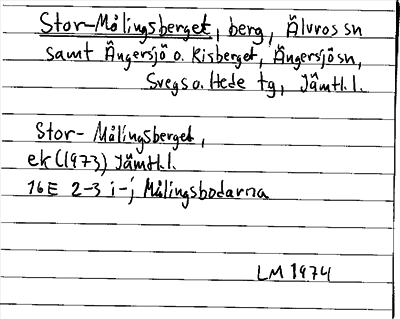 Stor-Målingsberget, berg, Älvros sn
samt Ängersjö o. Risberget, Ängersjö sn,
Svegs o. Hede tg, Jämtl. l.
Stor-Målingsberget,
ek (1973) Jämtl. l.
16E 2-3 i-j Målingsbodarna
LM 1974